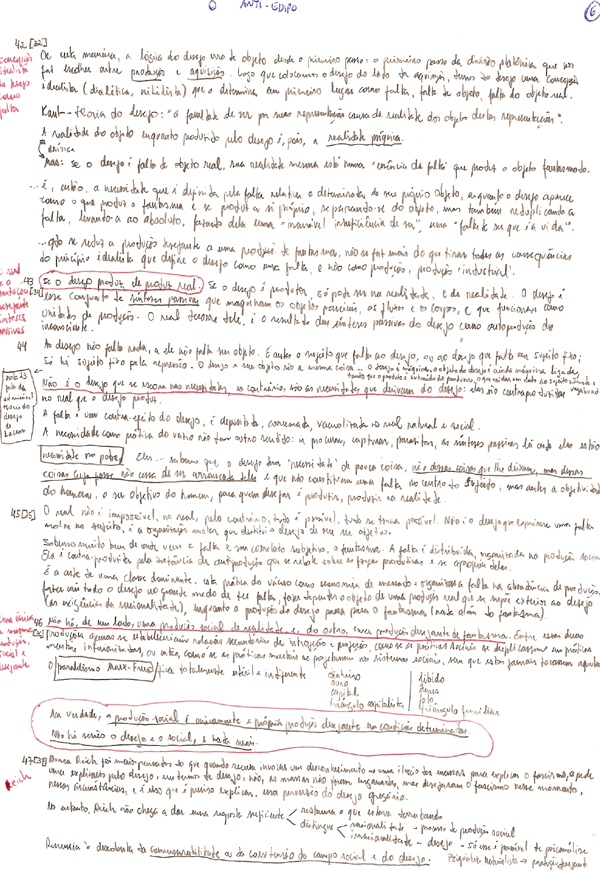 O ANTI-EDIPO
6
42 [32]
De certa maneira, a lógica do desejo erra de objeto desde o primeiro passo: o primeiro passo da divisão platónica que nos
faz escolher entre produção e aquisição. Logo que colocamos o desejo do lado da aquisição, temos do desejo uma concepção
idealista (dialética, niilista) que o determina em primeiro lugar como falta, falta de objeto, falta do objeto real.
concepção
idealista
do desejo
como
falta
Kant - teoria do desejo: "a faculdade de ser por suas representação causa da realidade dos objetos destas representações".
A realidade do objeto enquanto produzido pelo desejo é, pois, a realidade psíquica.
mas: se o desejo é falta de objeto real, sua realidade mesma está numa "essência da falta" que produz o objeto fantasmado.
... é, então, a necessidade que é definida pela falta relativa e determinada de seu próprio objeto, enquanto o desejo aparece
como o que produz o fantasma e se produz a si próprio, separando-se do objeto, mas também reduplicando a
falta, levando-a ao absoluto, fazendo dela uma "incurável insuficiência de ser", uma "falta de ser que é a vida".
se reduz a produção desejante a uma produção de fantasmas, não se faz mais do que tirar todas as consequências
do princípio idealista que define o desejo como uma falta, e não como produção, produção "industrial".
43 Se o desejo produz, ele produz real. Se o desejo é produtor, só pode ser na realidade, e da realidade. O desejo é
[34] esse conjunto de sínteses passivas que maquinam os objetos parciais, os fluxos e os corpos, e que funcionam como
unidades de produção. O real decorre dele, é o resultado das sínteses passivas do desejo como autoprodução do
inconsciente.
44 Ao desejo não falta nada, a ele não falta seu objeto. É antes o sujeito que falta ao desejo, ou ao desejo que falta um sujeito fixo;
Só há sujeito fixo pela repressão. O desejo e seu objeto são a mesma coisa... O desejo é máquina, o objeto do desejo é ainda máquina ligada,
Não é o desejo que se escora nas necessidades, ao contrário, são as necessidades que derivam do desejo: elas são contraproduzidas
no real que o desejo produz.
A falta é um contra-efeito do desejo, é depositada, arrumada, vacuolizada no real natural e social.
A necessidade como prática do vazio não tem outro sentido: ir procurar, capturar, parasitar as sínteses passivas lá onde elas estão
necessidade nos pobres Eles... sabem que o desejo tem "necessidade" de pouca coisa, não dessas coisas que lhe deixam, mas dessas
coisas cuja posse não cessa de ser arrancada deles e que não constituem uma falta no centro do sujeito, mas antes a objetividade
do homem, o ser objetivo do homem, para quem desejar é produzir, produzir na realidade.
45 [35] O real não é impossível, no real, pelo contrário, tudo é possível, tudo se torna possível. Não é o desejo que exprime uma falta
molar no sujeito, é a organização molar que destitui o desejo de seu ser objetivo.
Sabemos muito bem de onde vem a falta e seu correlato subjetivo, o fantasma. A falta é distribuída, organizada na produção social
Ela é contra-produzida pela instância de antiprodução que se rebate sobre as forças produtivas e se apropria delas.
É a arte de uma classe dominante, esta prática do vazio como economia de mercado: organizar a falta na abundância de produção,
fazer cair todo o desejo no grande medo de ter falta, fazer depender o objeto de uma produção real que se supõe exterior ao desejo
(as exigências da racionalidade), enquanto a produção do desejo passa para o fantasma (nada além do fantasma).
46 Não há, de um lado, uma produção social de realidade e, do outro, uma produção desejante de fantasma. Entre essas duas
[36] produções apenas se estabeleceriam relações secundárias de introjeção e projeção, como se as práticas sociais se duplicassem em práticas
mentais interiorizadas, ou então, como se as práticas mentais se projetassem nos sistemas sociais, sem que estas jamais tocassem aquelas
O paralelismo Marx-Freud fica totalmente estéril e indiferente
dinheiro | libido
ouro
capital | falo
triângulo capitalista | triângulo familiar
Na verdade, a produção social é unicamente a própria produção desejante em condições determinadas.
Não há senão o desejo e o social, e nada mais.
47 [37] Nunca Reich foi maior pensador do que quando recusa invocar um desconhecimento ou uma ilusão das massas para explicar o fascismo, e pede
uma explicação pelo desejo, em termos de desejo: não, as massas não foram enganadas, mas desejaram o fascismo nesse momento,
nessas circunstâncias, e é isso que é preciso explicar, essa perversão do desejo gregário.
Reich
No entanto, Reich não chega a dar uma resposta suficiente
restaura o que estava derrubando
distingue
racionalidade - processo de produção social
irracionalidade - desejo - só esse é passível de psicanálise
Renuncia à descoberta da comensurabilidade ou da coextensão do campo social e do desejo. Psiquiatria materialista → produção desejante